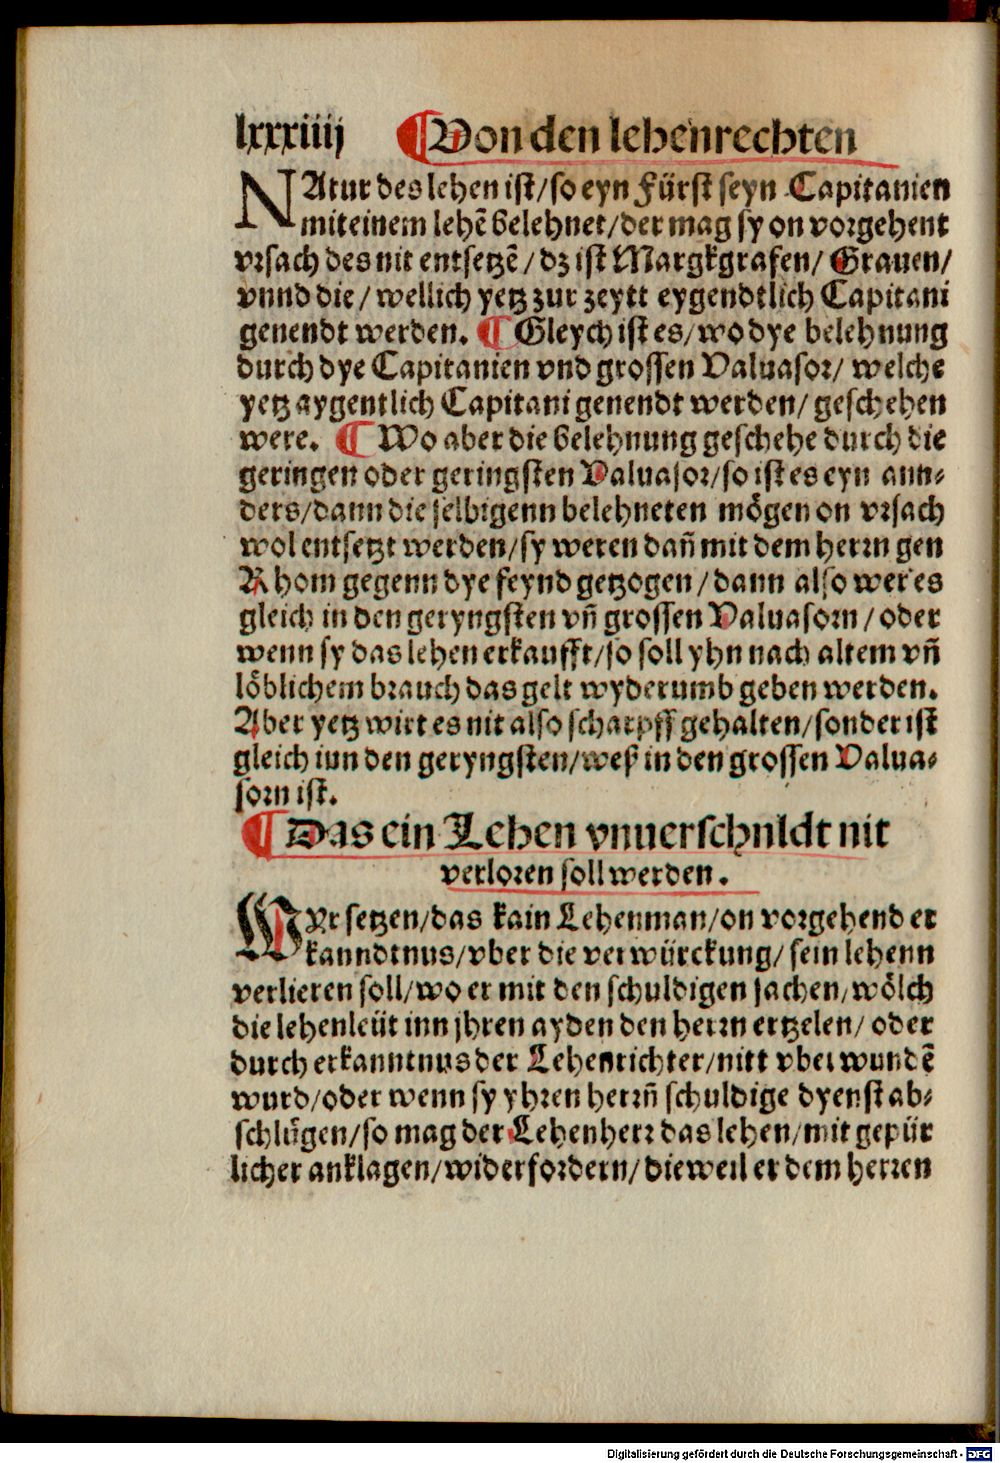 lxxxiiij ¶Von den lehenrechten
NAtur des lehen ist/so eyn Fürst seyn Capitanien
mit einem lehē belehnet/der mag sy on vorgehent
vrsach des nit entsetzē/dz ist Margkgrafen/Grauen/
vnnd die/wellich yetz zur zeytt eygendtlich Capitani
genendt werden. ¶Gleych ist es/wo dye belehnung
durch dye Capitanien vnd grossen Valuasor/welche
yetz aygentlich Capitani genendt werden/geschehen
were. ¶Wo aber die belehnung geschehe durch die
geringen oder geringsten Valuasor/so ist es eyn ann⸗
ders/dann die selbigenn belehneten mögen on vrsach
wol entsetzt werden/sy weren dañ mit dem herrn gen
Rhom gegenn dye feynd getzogen/dann also wer es
gleich in den geryngsten vñ grossen Valuasorn/oder
wenn sy das lehen erkaufft/so soll yhn nach altem vñ
löblichem brauch das gelt wyderumb geben werden.
Aber yetz wirt es nit also scharpff gehalten/sonder ist
gleich inn den geryngsten/weß in den grossen Valua⸗
sorn ist.
¶Das ein Lehen vnuerschuldt nit
verloren soll werden.
WYr setzen/das kain Lehenman/on vorgehend er
kanndtnus/vber die verwürckung/sein lehenn
verlieren soll/wo er mit den schuldigen sachen/wölch
die lehenleüt inn jhren ayden den herrn ertzelen/oder
durch erkanntnus der Lehenrichter/nitt vberwundē
wurd/oder wenn sy yhren herrñ schuldige dyenst ab⸗
schlůgen/so mag der Lehenherr das lehen/mit gepür
licher anklagen/widerfordern/dieweil er dem herren
Digitalisierung gefördert durch die Deutsche Forschungsgemeinschaft - DFG